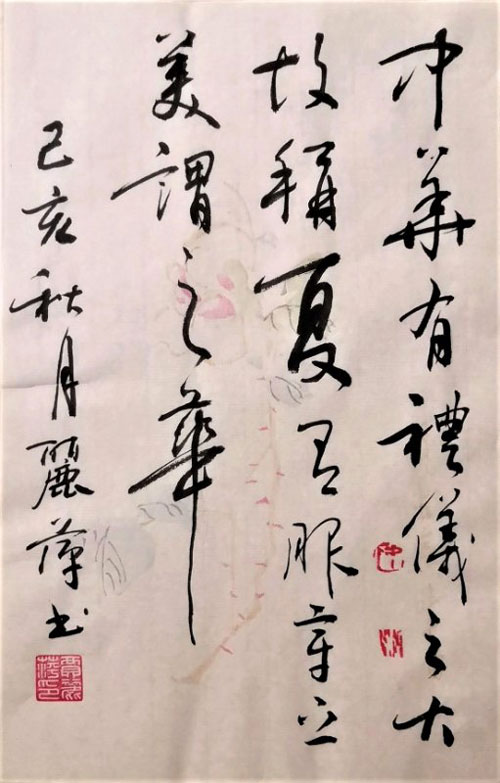 中华有禮儀之大
故稱夏有服章之
美謂之華
己亥秋月麗萍书